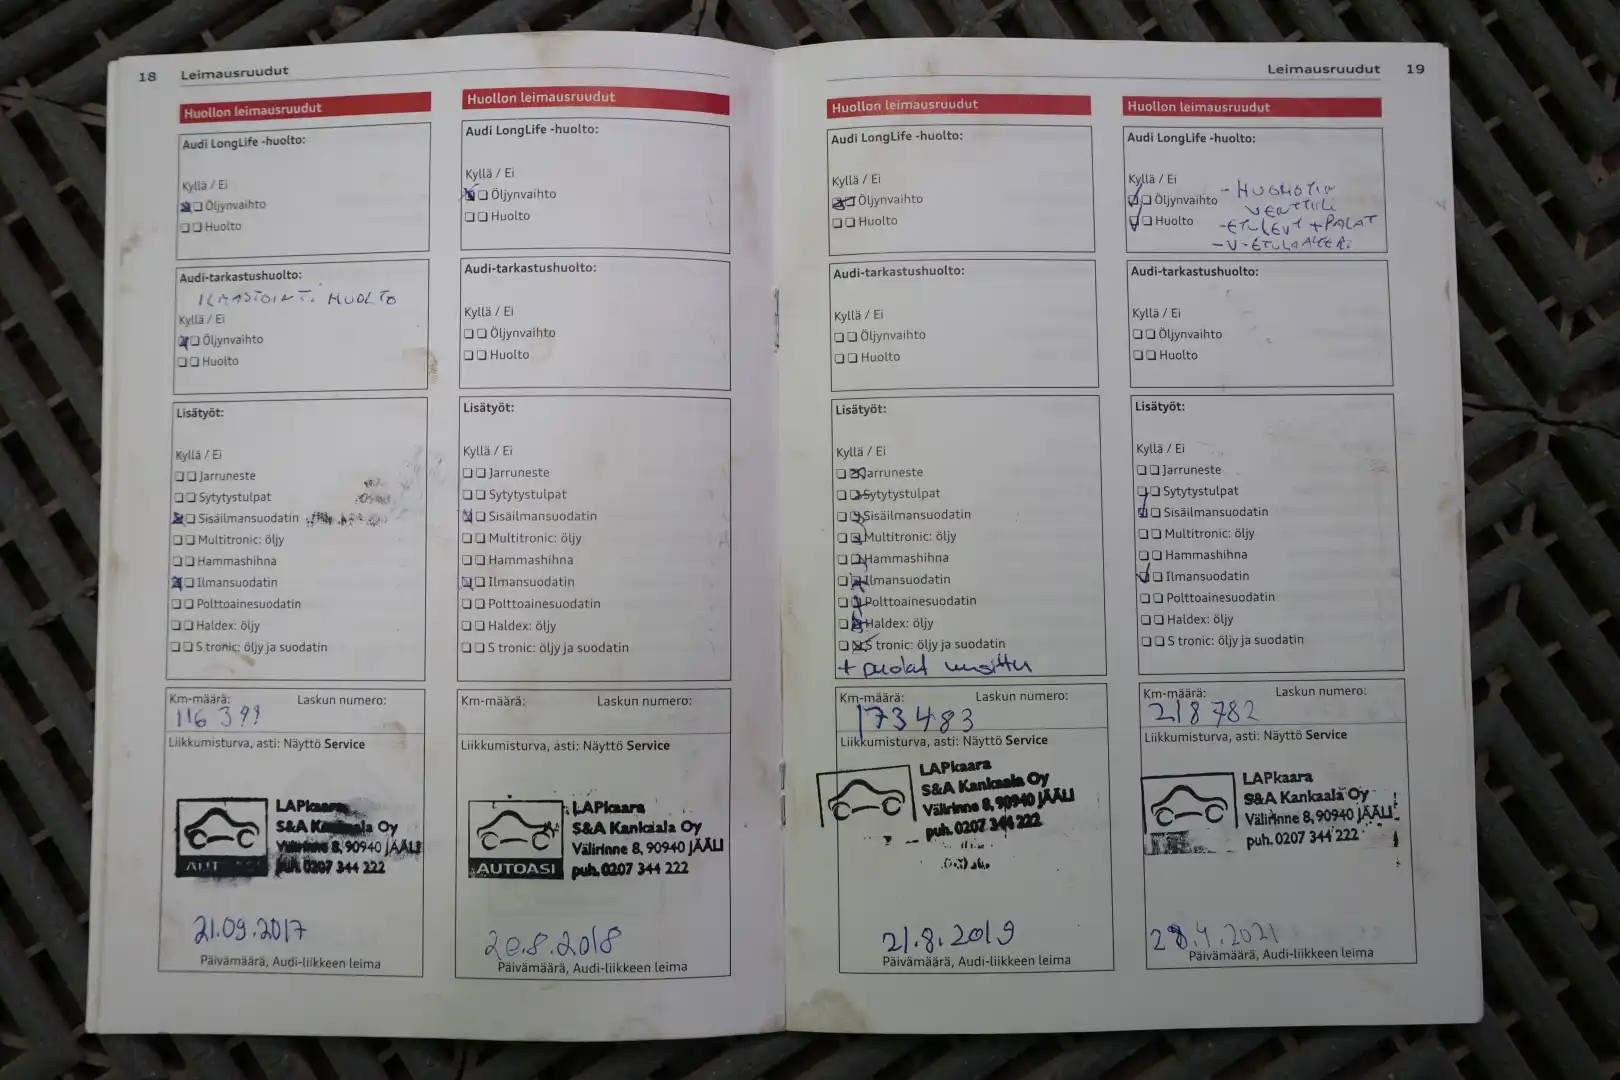 18 Leimausruudut
Huollon leimausruudut
Audi LongLife -huolto:
Kyllä / Ei
Öljynvaihto
Huolto
Audi-tarkastushuolto:
ILMASTOINTI HUOLTO
Kyllä / Ei
Öljynvaihto
Huolto
Lisätyöt:
Kyllä / Ei
Jarruneste
Sytytystulpat
Sisäilmansuodatin
Multitronic: öljy
Hammashihna
Ilmansuodatin
Polttoainesuodatin
Haldex: öljy
S tronic: öljy ja suodatin
Km-määrä: Laskun numero:
116 399
Liikkumisturva, asti: Näyttö Service
LAPkaara
S&A Kankaala Oy
Välirinne 8, 90940 JÄÄLI
puh. 0207 344 222
21.09.2017
Päivämäärä, Audi-liikkeen leima
Huollon leimausruudut
Audi LongLife -huolto:
Kyllä / Ei
Öljynvaihto
Huolto
Audi-tarkastushuolto:
Kyllä / Ei
Öljynvaihto
Huolto
Lisätyöt:
Kyllä / Ei
Jarruneste
Sytytystulpat
Sisäilmansuodatin
Multitronic: öljy
Hammashihna
Ilmansuodatin
Polttoainesuodatin
Haldex: öljy
S tronic: öljy ja suodatin
Km-määrä: Laskun numero:
Liikkumisturva, asti: Näyttö Service
LAPkaara
S&A Kankaala Oy
Välirinne 8, 90940 JÄÄLI
AUTOASI puh. 0207 344 222
20.8.2018
Päivämäärä, Audi-liikkeen leima
Leimausruudut 19
Huollon leimausruudut
Audi LongLife -huolto:
Kyllä / Ei
Öljynvaihto
Huolto
Audi-tarkastushuolto:
Kyllä / Ei
Öljynvaihto
Huolto
Lisätyöt:
Kyllä / Ei
Jarruneste
Sytytystulpat
Sisäilmansuodatin
Multitronic: öljy
Hammashihna
Ilmansuodatin
Polttoainesuodatin
Haldex: öljy
S tronic: öljy ja suodatin
+ puolat uusittu
Km-määrä: Laskun numero:
173483
Liikkumisturva, asti: Näyttö Service
LAPkaara
S&A Kankaala Oy
Välirinne 8, 90940 JÄÄLI
puh. 0207 344 222
21.8.2019
Päivämäärä, Audi-liikkeen leima
Huollon leimausruudut
Audi LongLife -huolto:
Kyllä / Ei
Öljynvaihto - HUOHOTIN
VENTTIILI
Huolto - ETULEVYT + PALAT
- V-ETULAAKERI
Audi-tarkastushuolto:
Kyllä / Ei
Öljynvaihto
Huolto
Lisätyöt:
Kyllä / Ei
Jarruneste
Sytytystulpat
Sisäilmansuodatin
Multitronic: öljy
Hammashihna
Ilmansuodatin
Polttoainesuodatin
Haldex: öljy
S tronic: öljy ja suodatin
Km-määrä: Laskun numero:
218 782
Liikkumisturva, asti: Näyttö Service
LAPkaara
S&A Kankaala Oy
Välirinne 8, 90940 JÄÄLI
puh. 0207 344 222
28.4.2021
Päivämäärä, Audi-liikkeen leima